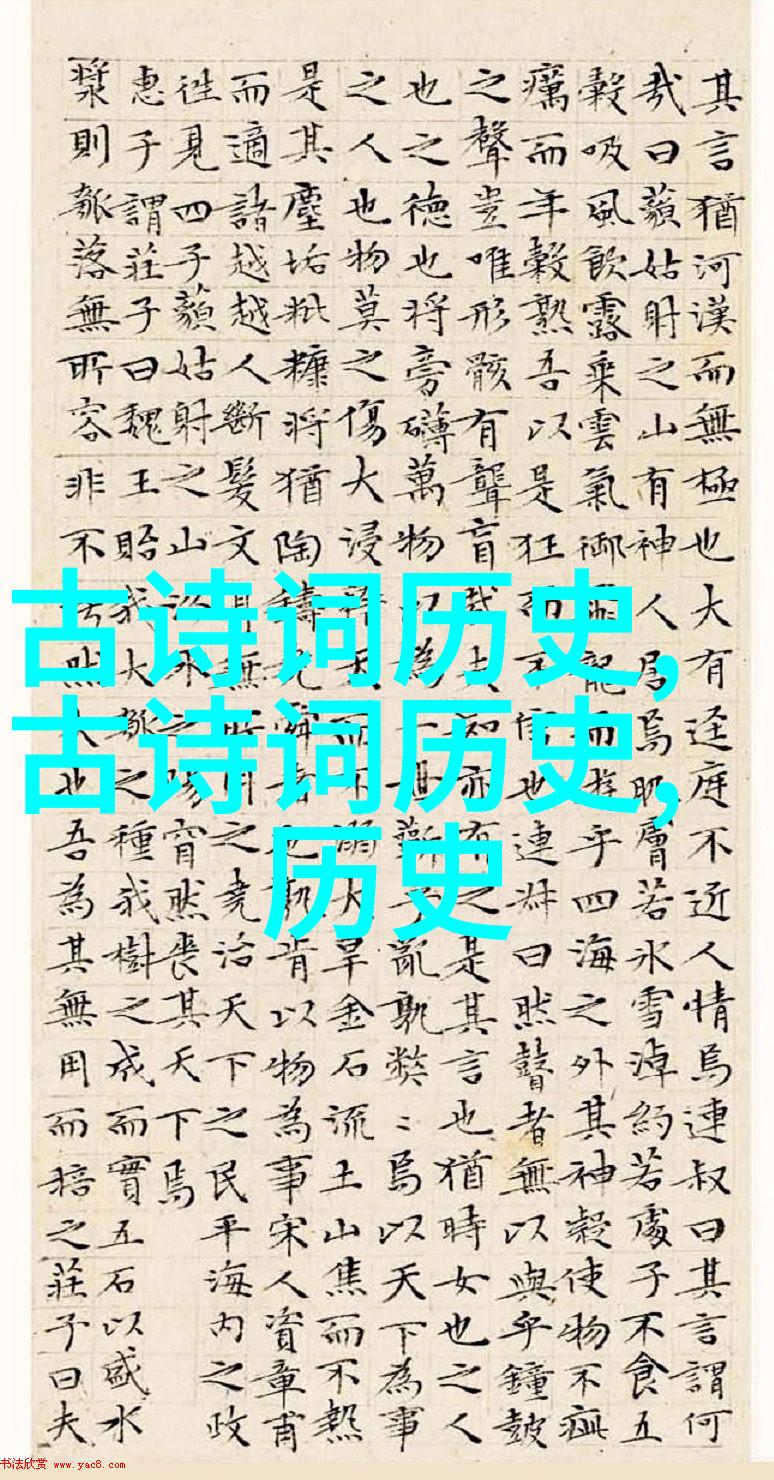 古诗词历史,
古诗词历史,
历史
其言猶河漢而無極也大有迳庭不近人情焉連叔曰其言謂何
哉曰藐姑射之山有神人居焉肌膚若氷雪淖約若處子不食五
穀吸風飲露乘雲氣御龍而遊乎四海之外其神凝使物不疵
癘而年穀熟吾以是狂而不信也連叔曰然瞽者無以與乎鐘鼓
之聲豈唯形骸有聾盲哉夫知亦有之是其言也猶時女也之人
也之德也將旁礴萬物以為一世蘄乎亂孰弊〻焉以天下為事
之人也物莫之傷大浸稽天而不溺大旱金石流土山焦而不熱
是其塵垢粃糠將猶陶鑄堯舜者也孰肯以物為事宋人資章甫
而適諸越越人斷髮文身無所用之堯治天下之民平海内之政
往見四子藐姑射之山汾水之陽窅然喪其天下焉
惠子謂莊子曰魏王貽我大瓠之種我樹之成而實五石以盛水
漿則瓠落無所容非不然大也吾為其無用而掊之莊子曰夫
书法欣赏 www.yac8.com